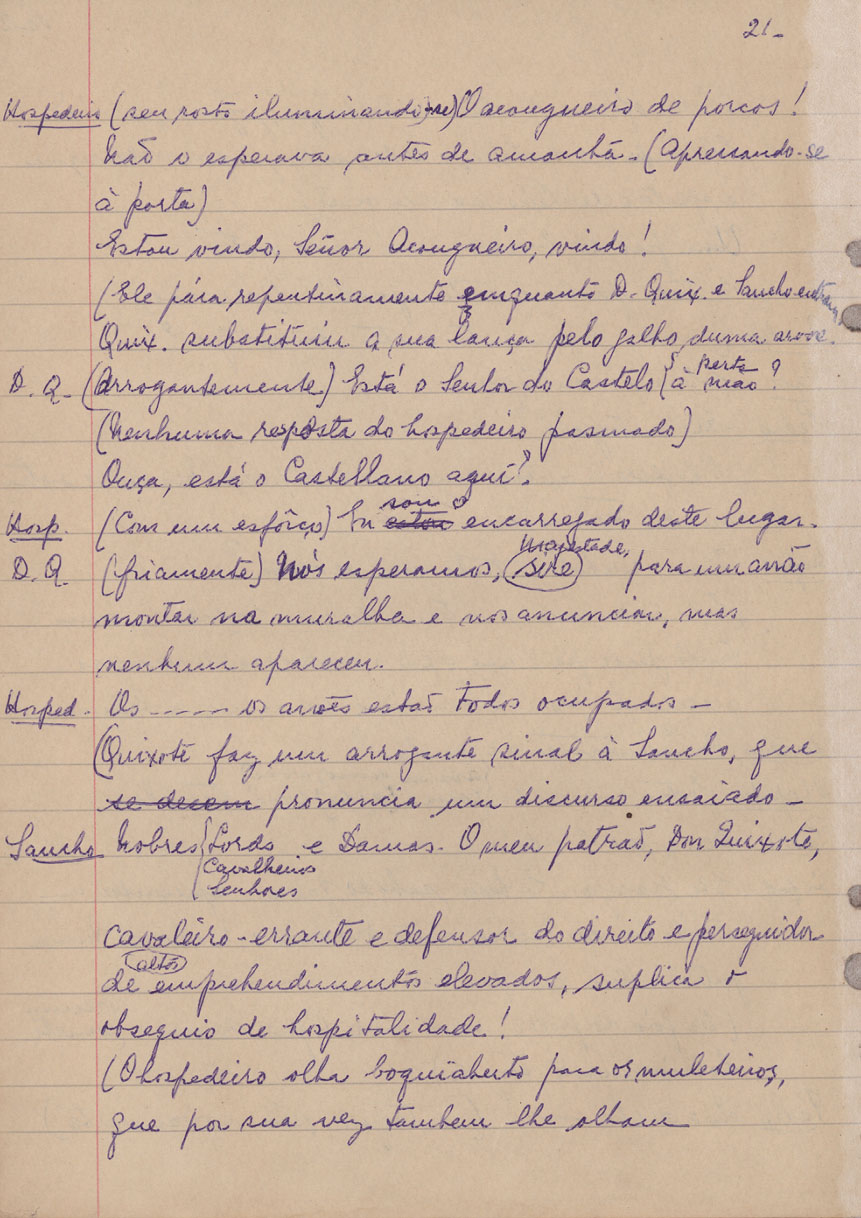 21-
Hospedeiro (seu rosto iluminando-se) O açougueiro de porcos!
Não o esperava antes de amanhã. (Apressando-se
à porta)
Estou vindo, Señor Açougueiro, vindo!
(Ele pára repentinamente enquanto D. Quix. e Sancho entram,
Quix. substituiu a sua lança pelo galho duma arvore.
D. Q. (Arrogantemente) Está o Senhor do Castelo à mão?
perto
(Nenhuma resposta do hospedeiro pasmado)
Ouça, está o Castellano aquí?
sou o
Hosp. (Com um esfôrço) Eu estou encarregado deste lugar.
majestade,
D. Q. (friamente) Nós esperamos, sire para um anão
montar na muralha e nos anunciar, mas
nenhum apareceu.
Hosped. Os ----- os anões estão todos ocupados -
(Quixote faz um arrogante sinal à Sancho, que
se descem pronuncia um discurso ensaiado -
Sancho Nobres Lords e Damas. O meu patrão, Don Quixote,
Cavalheiros
Senhores
cavaleiro-errante e defensor do direito e perseguidor
altos
de emprehendimentos elevados, suplica o
obsequio de hospitalidade!
(O hospedeiro olha boquiaberto para os muleteiros,
que por sua vez tambem lhe olham